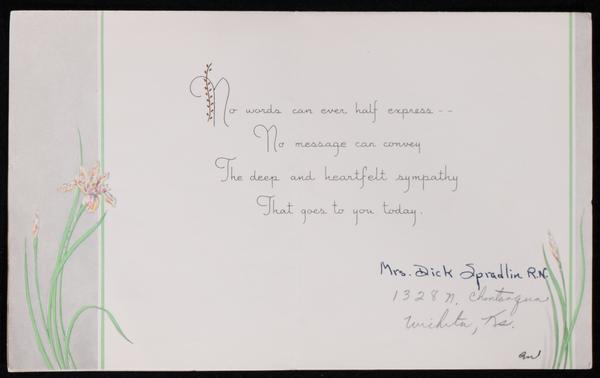 No words can ever half express--
No message can convey
The deep and heartfelt sympathy
That goes to you today.
Mrs. Dick Spradlin R.N.
1328 N. Chautauqua
Wichita, Ks.